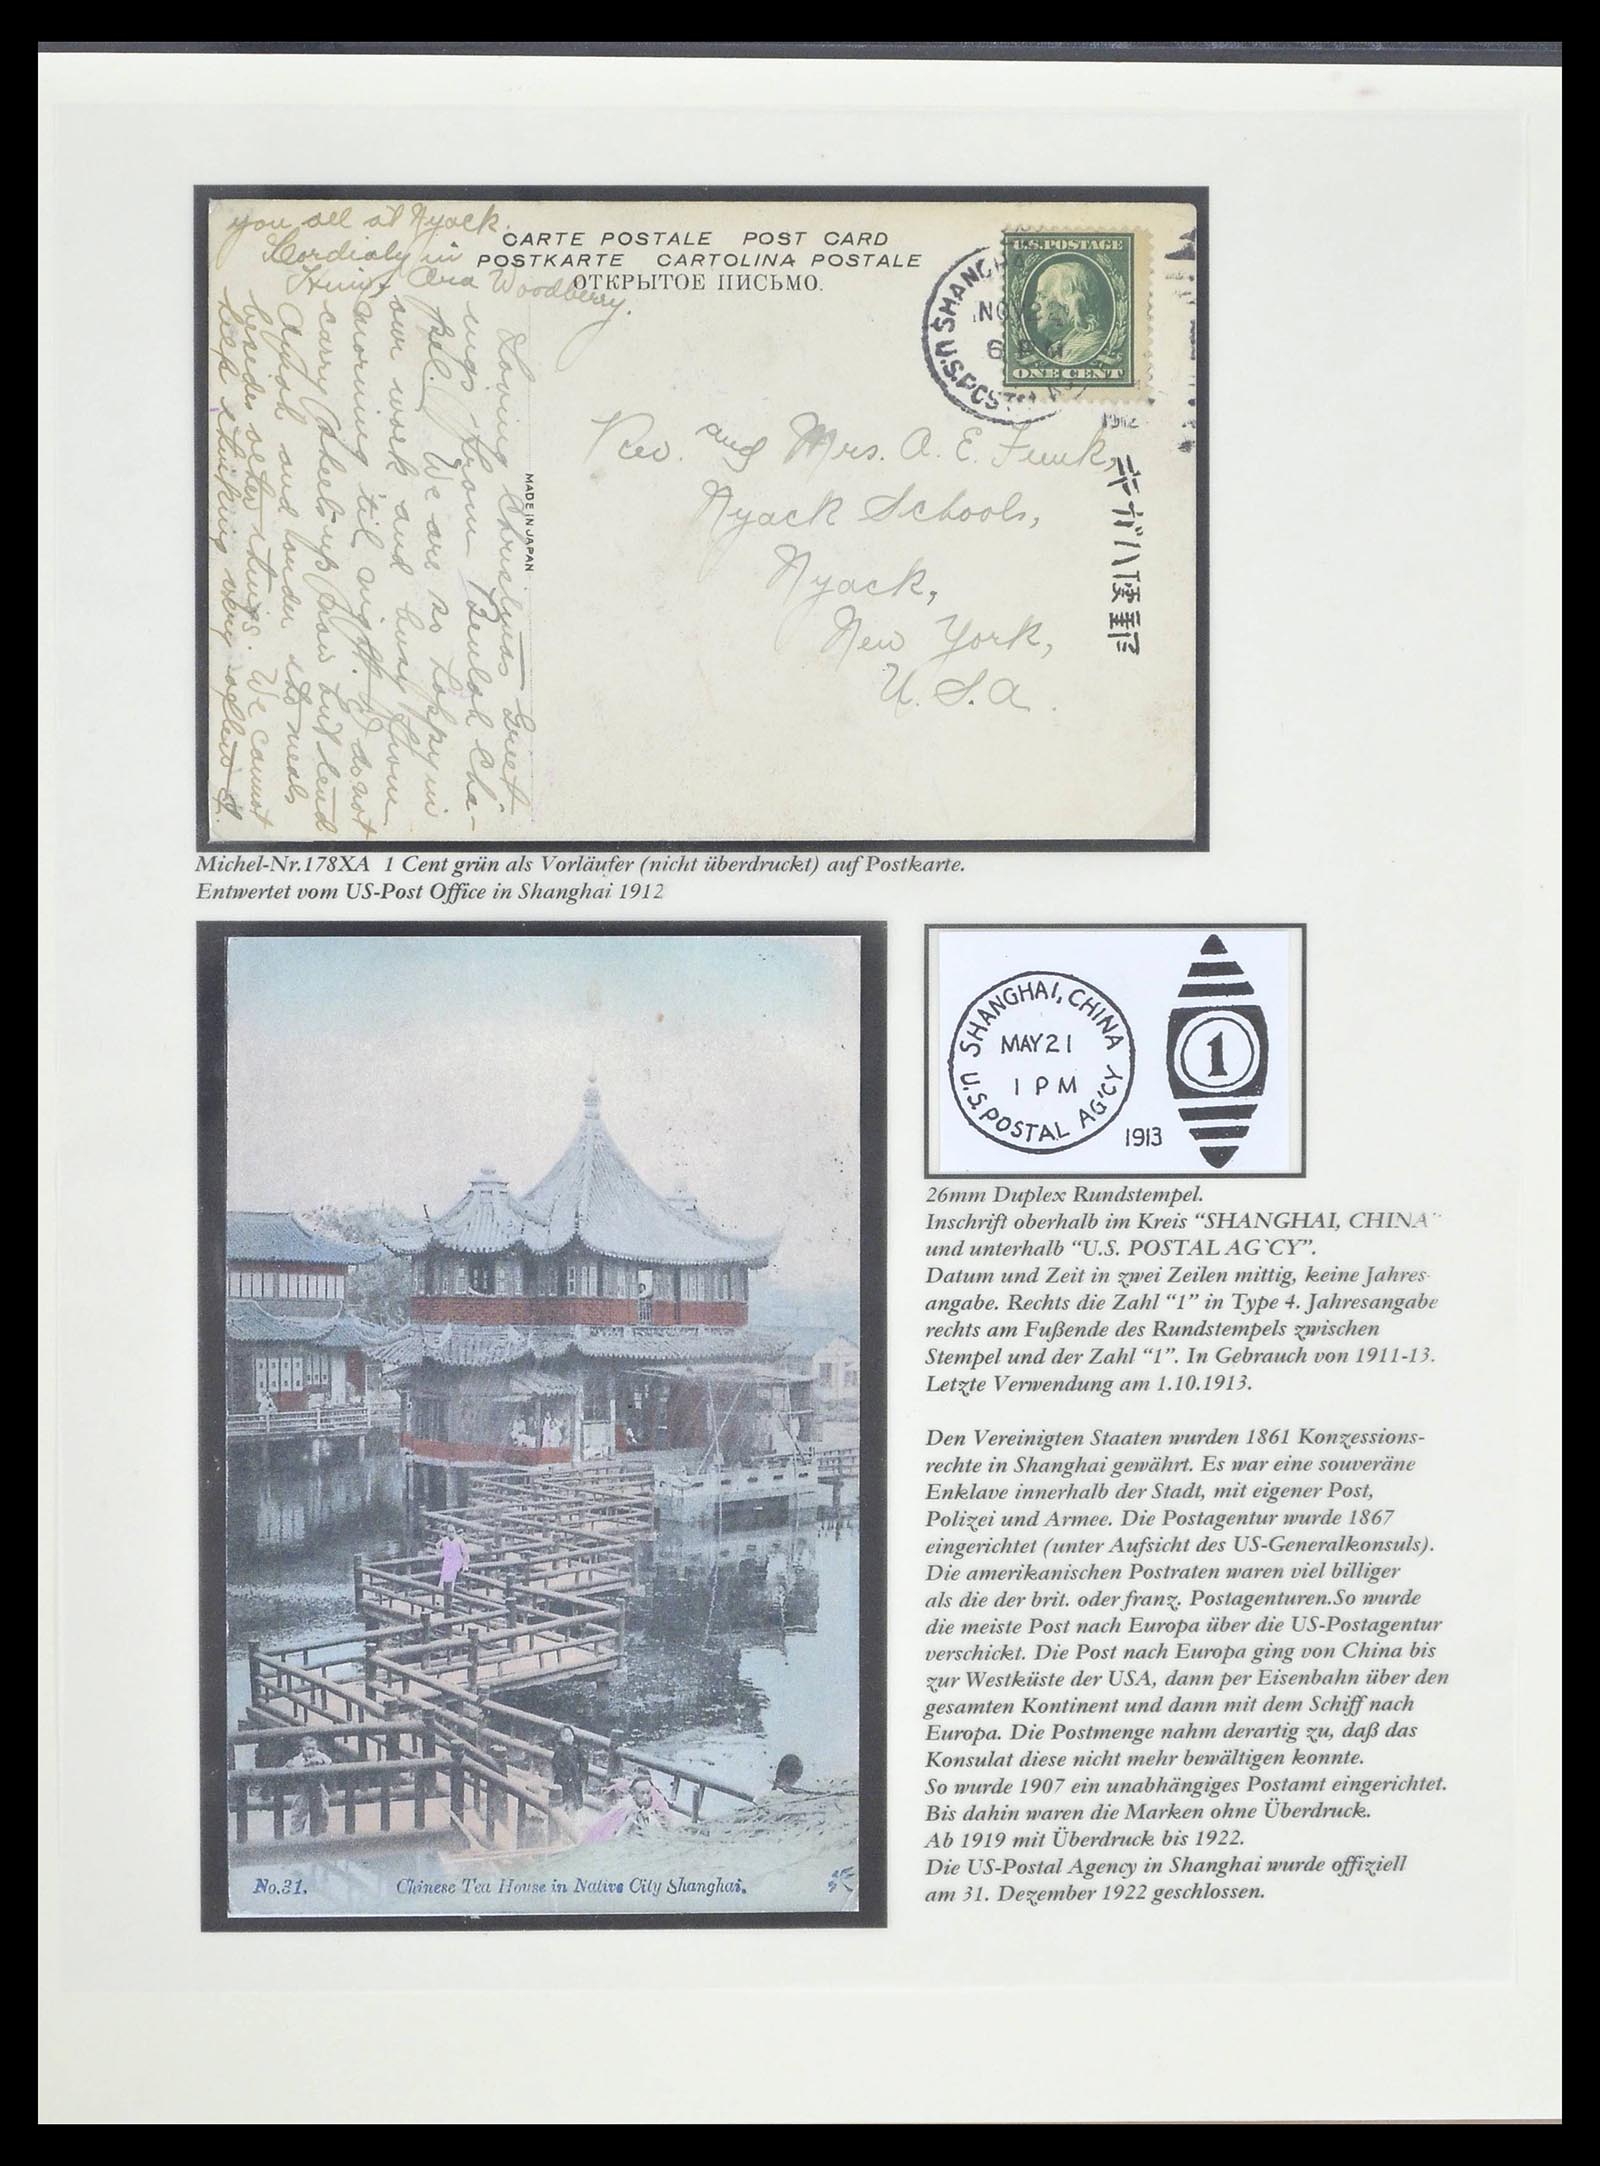 you all at Nyack.
Cordialy in
Him, Ora Woodberry.
CARTE POSTALE POST CARD
POSTKARTE CARTOLINA POSTALE
ОТКРЫТОЕ ПИСЬМО.
Loving Christmas Greet
ings from Beulah Cha-
pel. We are so happy in
our work and busy from
morning 'til night. I do not
carry wheels up now but lend
and tender to meals
besides other things. We cannot
keep thinking very
MADE IN JAPAN
SHANGHA
NOV 2
6 P M
U.S.POST
1912
U.S.POSTAGE
ONE CENT
Rev. and Mrs. A. E. Funk,
Nyack Schools,
Nyack,
New York,
U. S. A.
Michel-Nr.178XA 1 Cent grün als Vorläufer (nicht überdruckt) auf Postkarte.
Entwertet vom US-Post Office in Shanghai 1912
No.31. Chinese Tea House in Native City Shanghai.
SHANGHAI, CHINA
MAY 21
1 P M
U.S. POSTAL AG'CY
1913
1
26mm Duplex Rundstempel.
Inschrift oberhalb im Kreis “SHANGHAI, CHINA”
und unterhalb “U.S. POSTAL AG`CY”.
Datum und Zeit in zwei Zeilen mittig, keine Jahres-
angabe. Rechts die Zahl “1” in Type 4. Jahresangabe
rechts am Fußende des Rundstempels zwischen
Stempel und der Zahl “1”. In Gebrauch von 1911-13.
Letzte Verwendung am 1.10.1913.
Den Vereinigten Staaten wurden 1861 Konzessions-
rechte in Shanghai gewährt. Es war eine souveräne
Enklave innerhalb der Stadt, mit eigener Post,
Polizei und Armee. Die Postagentur wurde 1867
eingerichtet (unter Aufsicht des US-Generalkonsuls).
Die amerikanischen Postraten waren viel billiger
als die der brit. oder franz. Postagenturen.So wurde
die meiste Post nach Europa über die US-Postagentur
verschickt. Die Post nach Europa ging von China bis
zur Westküste der USA, dann per Eisenbahn über den
gesamten Kontinent und dann mit dem Schiff nach
Europa. Die Postmenge nahm derartig zu, daß das
Konsulat diese nicht mehr bewältigen konnte.
So wurde 1907 ein unabhängiges Postamt eingerichtet.
Bis dahin waren die Marken ohne Überdruck.
Ab 1919 mit Überdruck bis 1922.
Die US-Postal Agency in Shanghai wurde offiziell
am 31. Dezember 1922 geschlossen.